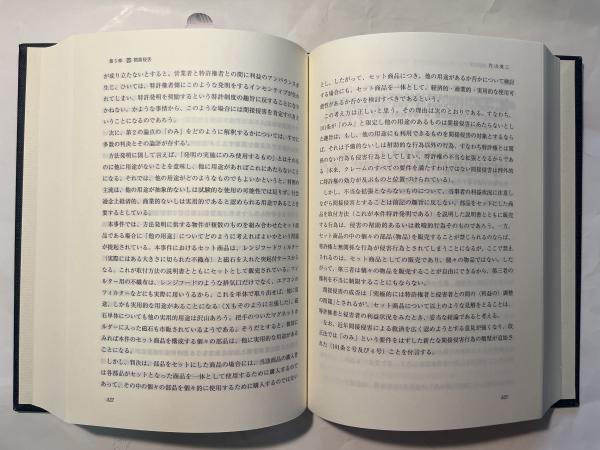 第5章 間接侵害
が成り立たないとすると、営業者と特許権者との間に利益のアンバランスが
生じ、ひいては、特許権者側にこのような発明をするインセンティブが失わ
れてしまい、特許発明を奨励するという特許制度の趣旨に反することになり
かねない。かような事情から、このような場合には間接侵害を肯定すべきと
いうことになるのであろう。
次に、第2の論点の「のみ」をどのように解釈するかについては、すでに
多数の判決とその論評が存する。
方法発明に関して言えば、「発明の実施にのみ使用するもの」とはそのも
のに他に用途がないことを意味し、他に用途があればこれにあたらないとさ
れる。それでは、他の用途がどのようなものでもよいかというと、判例の
主流は、他の用途が抽象的ないしは試験的な使用の可能性では足りず、社会
通念上経済的、商業的ないしは実用的であると認められる用途であることを
要するとしている。
本事件では、方法発明に供する物件が複数のものを組み合わせたセット商
品である場合に「他の用途」についてどのように考えればよいかという問題
が提起されている。本事件におけるセット商品は、レンジフードフィルター
（実際にはある大きさに切られた不織布）と磁石を入れた突起付ケースから
なる。これが取付方法の説明書とともにセットとして販売されている。フィ
ルター用の不織布は、レンジフードのような排気口だけでなく、エアコンの
フィルターなどにも実際に用いうるから、これを単体で取り出せば、他に用
途、しかも実用的な用途があることになる（Xもそのように主張した）。磁
石単体についても他の用途は沢山あろう。把手のついたマグネットホ
ルダーに入った磁石も市販されているようである。そうだとすると、微視的に
みれば本件のセット商品を構成する個々の部品は、他に実用的な用途がある
ことになる。
しかし、判決は、部品をセットにした商品の場合には、当該商品の購入者
は各部品がセットとなった商品を一体として使用するために購入するので
あって、その中の個々の部品を個々的に使用するために購入するのではない
427
片山英二
とし、したがって、セット商品につき、他の用途があるか否かについて検討
する場合にも、セット商品を一体として、経済的・商業的・実用的な使用可
能性があるか否かを検討すべきであるという。
この考え方は正しいと思う。その理由は次のとおりである。すなわち、
101条が「のみ」と限定し他の用途のあるものは間接侵害にあたらないとし
た趣旨は、もし、他の用途にも利用できるものを間接侵害の対象とするなら
ば、それは予備的ないしは幇助的な行為以外の行為、すなわち特許とは関係
のない行為も侵害行為としてしまい、特許権の不当な拡張となるからであ
る（本来、クレームのすべての要件を満たすわけではない間接侵害は例外的
に特許権の効力が及ぶものと位置づけられている）。
しかし、不当な拡張とならないものについて、当事者の利益状況に注意し
ながら間接侵害とすることは前記の趣旨に反しない。部品をセットにした商
品を取付方法（これが本件特許発明である）を説明した説明書とともに販売
する行為は、侵害の幇助的あるいは教唆的行為そのものであり、一方、
セット商品の中の個々の部品（物品）を販売することが禁じられるのならば、
特許権と無関係な行為が侵害行為とされてしまうことになるが、ここで禁ま
れるのは、セット商品としての販売であり、個々の物品ではない。したがっ
て、第三者は個々の物品を販売することが自由にできるから、第三者の
権利を不当に制限することにもならない。
間接侵害の成否は「究極的には特許権者と侵害者との間の（利益の）調整
の問題」とされるが、セット商品について以上のような見解をとることは、
特許権者と侵害者の利益状況をみたとき、妥当な結論であると考える。
なお、近年間接侵害による救済を広く認めようとする意見が強くなり、改
正法では「のみ」という要件をはずした新たな間接侵害行為の類型が追加さ
れた（101条2号及び4号）ことを付言する。